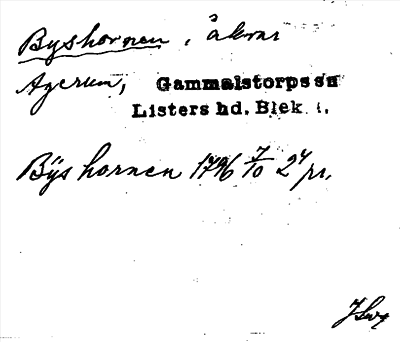 Byshornen, åkrar
Agerum, Gammalstorps sn
Listers hd. Blek.
Bÿshornen 1796 7/10 2 pr.